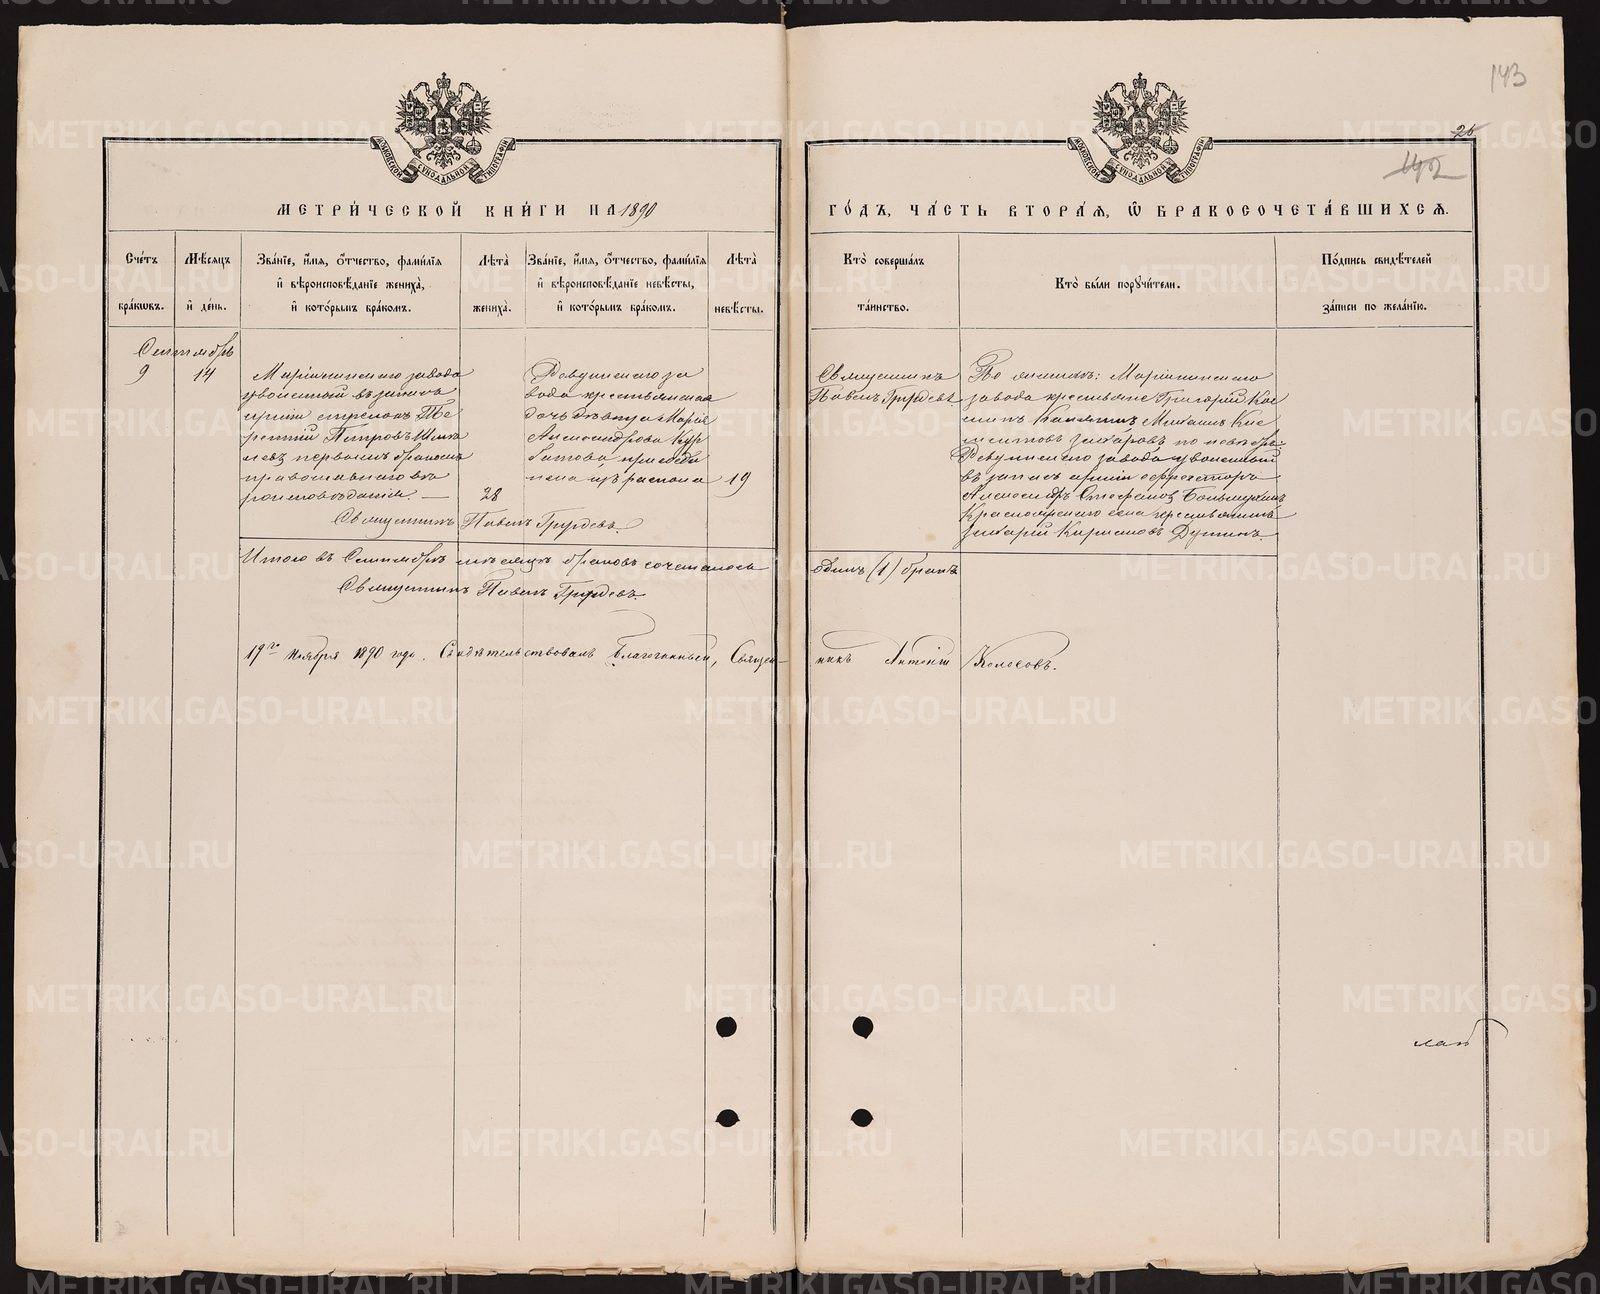 143
25
142
МОСКОВСКОЙ СѴНОДАЛЬНОЙ ТИПОГРАФІИ
МОСКОВСКОЙ СѴНОДАЛЬНОЙ ТИПОГРАФІИ
МЕТРИ́ЧЕСКОЙ КНИ́ГИ НА 1890
ГО́ДЪ, ЧА́СТЬ ВТОРА́Ѧ, Ѡ БРАКОСОЧЕТА́ВШИХСѦ.
Сче́тъ бра́кѡвъ.
Мѣ́сяцъ и҆ де́нь.
Зва́нїе, и҆́мѧ, ѻ҆́тчество, фами́лїѧ и҆ вѣроисповѣ́данїе жениха̀, и҆ кото́рымъ бра́комъ.
Лѣта̀ жениха̀.
Зва́нїе, и҆́мѧ, ѻ҆́тчество, фами́лїѧ и҆ вѣроисповѣ́данїе невѣ́сты, и҆ кото́рымъ бра́комъ.
Лѣта̀ невѣ́сты.
Кто̀ соверша́лъ та́инство.
Кто̀ бы́ли порꙋчи́тели.
По́дпись свидѣ́телей за́писи по жела́нїю.
Сентябрь
9
14
Маріинскаго завода
уволенный въ запасъ
арміи стрелокъ Те
рентій Петровъ
первымъ бракомъ
православнаго вѣ
роисповѣданія. —
28
Ревдинскаго за
вода крестьянская
дочь дѣвица Марія
Александрова Кур
батова, присоеди
нена изъ раскола
19
Священникъ
Павелъ Груздевъ.
По женихѣ: Маріинскаго
завода крестьяне Григорій
Захаровъ по невѣстѣ:
Ревдинскаго завода уволенный
въ запасъ арміи ефрейторъ
Александръ Стефановъ
Красноярскаго села крестьянинъ
Захарій Кирилловъ
Священникъ Павелъ Груздевъ.
Итого въ Сентябрѣ мѣсяцѣ браковъ сочеталось
одинъ (1) бракъ
Священникъ Павелъ Груздевъ.
19го Ноября 1890 года. Свидѣтельствовалъ Благочинный, Священ-
никъ Антоній Колосовъ.
METRIKI.GASO-URAL.RU